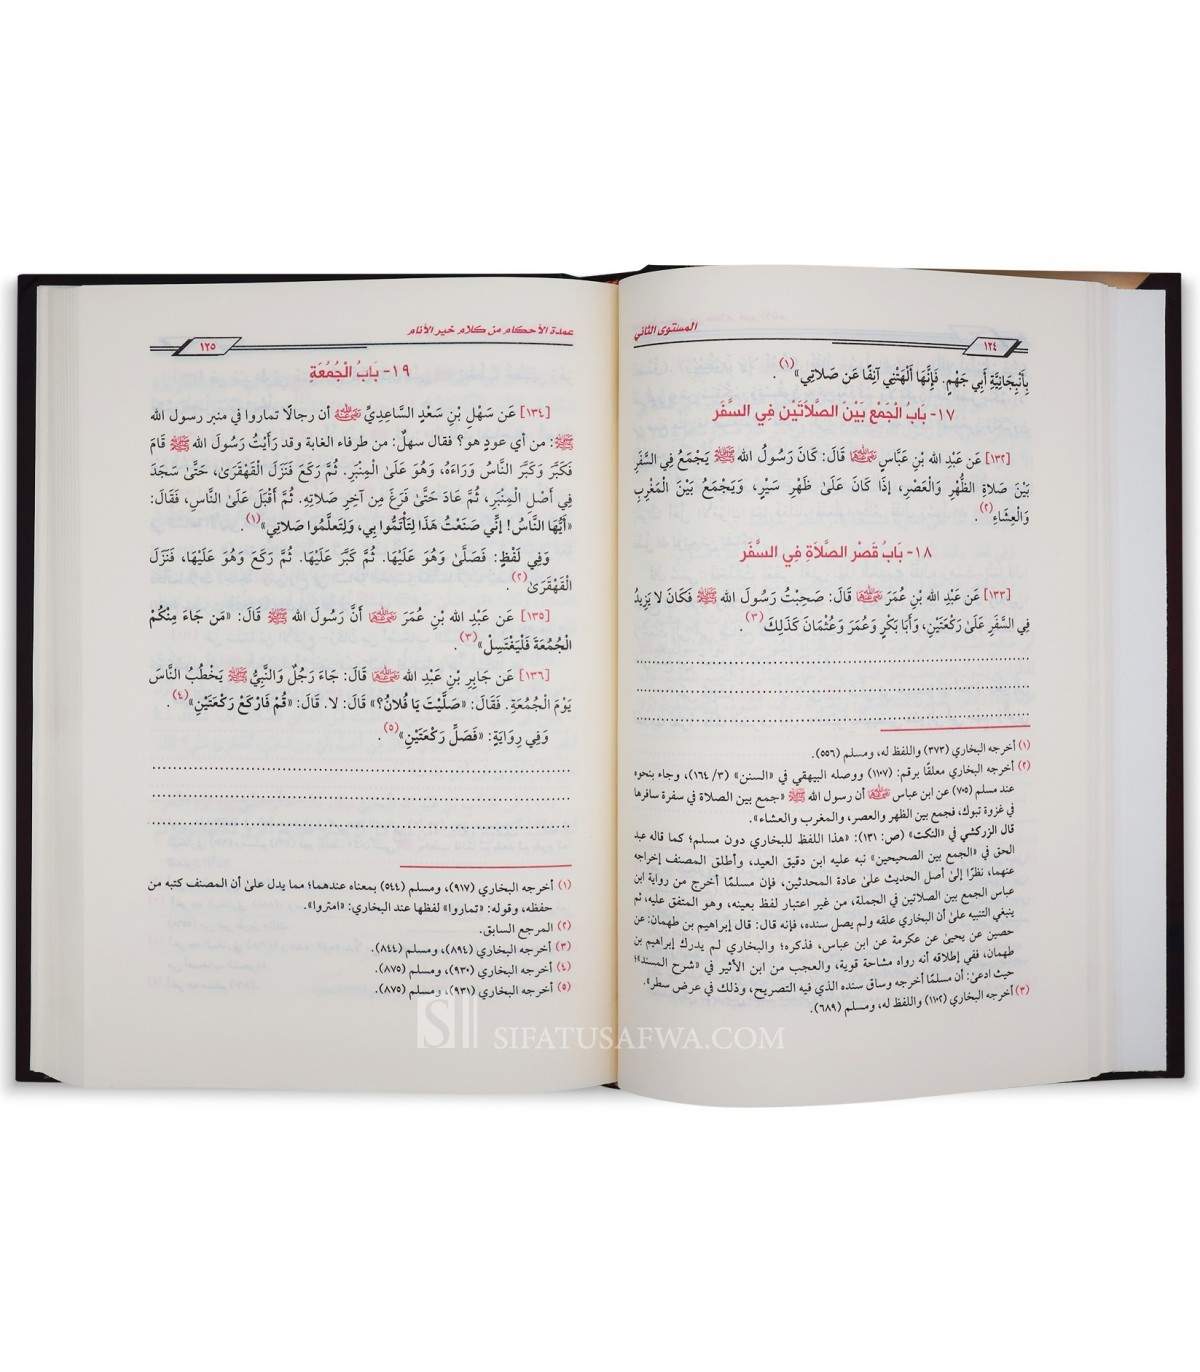 المستوى الثاني
١٢٤
بِأَنْبِجَانِيَّةِ أَبِي جَهْمٍ. فَإِنَّهَا أَلْهَتْنِي آنِفًا عَن صَلاتِي»(١).
١٧- بَابُ الْجَمْعِ بَيْنَ الصَّلاتَيْنِ فِي السَّفَرِ
[١٣٢] عَن عَبْدِ الله بْنِ عَبَّاسٍ ﵄ قَالَ: كَانَ رَسُولُ الله ﷺ يَجْمَعُ فِي السَّفَرِ
بَيْنَ صَلاةِ الظُّهْرِ وَالْعَصْرِ، إذَا كَانَ عَلَىٰ ظَهْرِ سَيْرٍ، وَيَجْمَعُ بَيْنَ الْمَغْرِبِ
وَالْعِشَاءِ(٢).
١٨- بَابُ قَصْرِ الصَّلاَةِ فِي السَّفَرِ
[١٣٣] عَن عَبْدِ الله بْنِ عُمَرَ ﵄ قَالَ: صَحِبْتُ رَسُولَ الله ﷺ فَكَانَ لا يَزِيدُ
فِي السَّفَرِ عَلَىٰ رَكْعَتَيْنِ، وَأَبَا بَكْرٍ وَعُمَرَ وَعُثْمَانَ كَذَلِكَ(٣).
(١) أخرجه البخاري (٣٧٣) واللفظ له، ومسلم (٥٥٦).
(٢) أخرجه البخاري معلقًا برقم: (١١٠٧) ووصله البيهقي في «السنن» (٣/ ١٦٤)، وجاء بنحوه
عند مسلم (٧٠٥) عن ابن عباس ﵄ أن رسول الله ﷺ «جمع بين الصلاة في سفرة سافرها
في غزوة تبوك، فجمع بين الظهر والعصر، والمغرب والعشاء».
قال الزركشي في «النكت» (ص: ١٣١): «هذا اللفظ للبخاري دون مسلم؛ كما قاله عبد
الحق في «الجمع بين الصحيحين» نبه عليه ابن دقيق العيد، وأطلق المصنف إخراجه
عنهما، نظرًا إلىٰ أصل الحديث علىٰ عادة المحدثين، فإن مسلمًا أخرج من رواية ابن
عباس الجمع بين الصلاتين في الجملة، من غير اعتبار لفظ بعينه، وهو المتفق عليه، ثم
ينبغي التنبيه علىٰ أن البخاري علقه ولم يصل سنده، فإنه قال: قال إبراهيم بن طهمان: عن
حصين عن يحيىٰ عن عكرمة عن ابن عباس، فذكره؛ والبخاري لم يدرك إبراهيم بن
طهمان، ففي إطلاقه أنه رواه مشاحة قوية، والعجب من ابن الأثير في «شرح المسند»؛
حيث ادعىٰ: أن مسلمًا أخرجه وساق سنده الذي فيه التصريح، وذلك في عرض سطر».
(٣) أخرجه البخاري (١١٠٢) واللفظ له، ومسلم (٦٨٩).
عمدة الأحكام من كلام خير الأنام
١٢٥
١٩- بَابُ الْجُمُعَةِ
[١٣٤] عَن سَهْلِ بْنِ سَعْدٍ السَّاعِدِيِّ ﵁ أن رجالًا تماروا في منبر رسول الله
ﷺ: من أي عودٍ هو؟ فقال سهلٌ: من طرفاء الغابة وقد رَأَيْتُ رَسُولَ الله ﷺ قَامَ
فَكَبَّرَ وَكَبَّرَ النَّاسُ وَرَاءَهُ، وَهُوَ عَلَىٰ الْمِنْبَرِ. ثُمَّ رَكَعَ فَنَزَلَ الْقَهْقَرَىٰ، حَتَّىٰ سَجَدَ
فِي أَصْلِ الْمِنْبَرِ، ثُمَّ عَادَ حَتَّىٰ فَرَغَ مِن آخِرِ صَلاتِهِ. ثُمَّ أَقْبَلَ عَلَىٰ النَّاسِ، فَقَالَ:
«أَيُّهَا النَّاسُ! إنِّي صَنَعْتُ هَذَا لِتَأْتَمُّوا بِي، وَلِتَعلَّمُوا صَلاتِي»(١).
وَفِي لَفْظٍ: فَصَلَّىٰ وَهُوَ عَلَيْهَا. ثُمَّ كَبَّرَ عَلَيْهَا. ثُمَّ رَكَعَ وَهُوَ عَلَيْهَا، فَنَزَلَ
الْقَهْقَرَىٰ(٢).
[١٣٥] عَن عَبْدِ الله بْنِ عُمَرَ ﵄ أَنَّ رَسُولَ الله ﷺ قَالَ: «مَن جَاءَ مِنْكُمْ
الْجُمُعَةَ فَلْيَغْتَسِلْ»(٣).
[١٣٦] عَن جَابِرِ بْنِ عَبْدِ الله ﵄ قَالَ: جَاءَ رَجُلٌ وَالنَّبِيُّ ﷺ يَخْطُبُ النَّاسَ
يَوْمَ الْجُمُعَةِ. فَقَالَ: «صَلَّيْتَ يَا فُلانُ؟» قَالَ: لا. قَالَ: «قُمْ فَارْكَعْ رَكْعَتَيْنِ»(٤).
وَفِي رِوَايَةٍ: «فَصَلِّ رَكْعَتَيْنِ»(٥).
(١) أخرجه البخاري (٩١٧)، ومسلم (٥٤٤) بمعناه عندهما؛ مما يدل علىٰ أن المصنف كتبه من
حفظه، وقوله: «تماروا» لفظها عند البخاري: «امتروا».
(٢) المرجع السابق.
(٣) أخرجه البخاري (٨٩٤)، ومسلم (٨٤٤).
(٤) أخرجه البخاري (٩٣٠)، ومسلم (٨٧٥).
(٥) أخرجه البخاري (٩٣١)، ومسلم (٨٧٥).
SIFATUSAFWA.COM